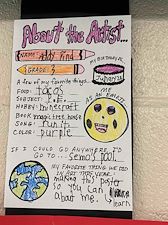 About the Artist...
NAME:
GRADE: 3
MY BIRTHDAY IS
A few of my favorite things...
FOOD: tacos
SUBJECT: P.E.
HOBBY: minecraft
BOOK: magic tree house
SONG:
COLOR: purple
ME
AS AN EMOJI
IF I COULD GO ANYWHERE I'D
GO TO... Semo's pool.
MY FAVORITE THING WE DID
IN ART THIS YEAR...
making this poster
so you can
learn
about me.